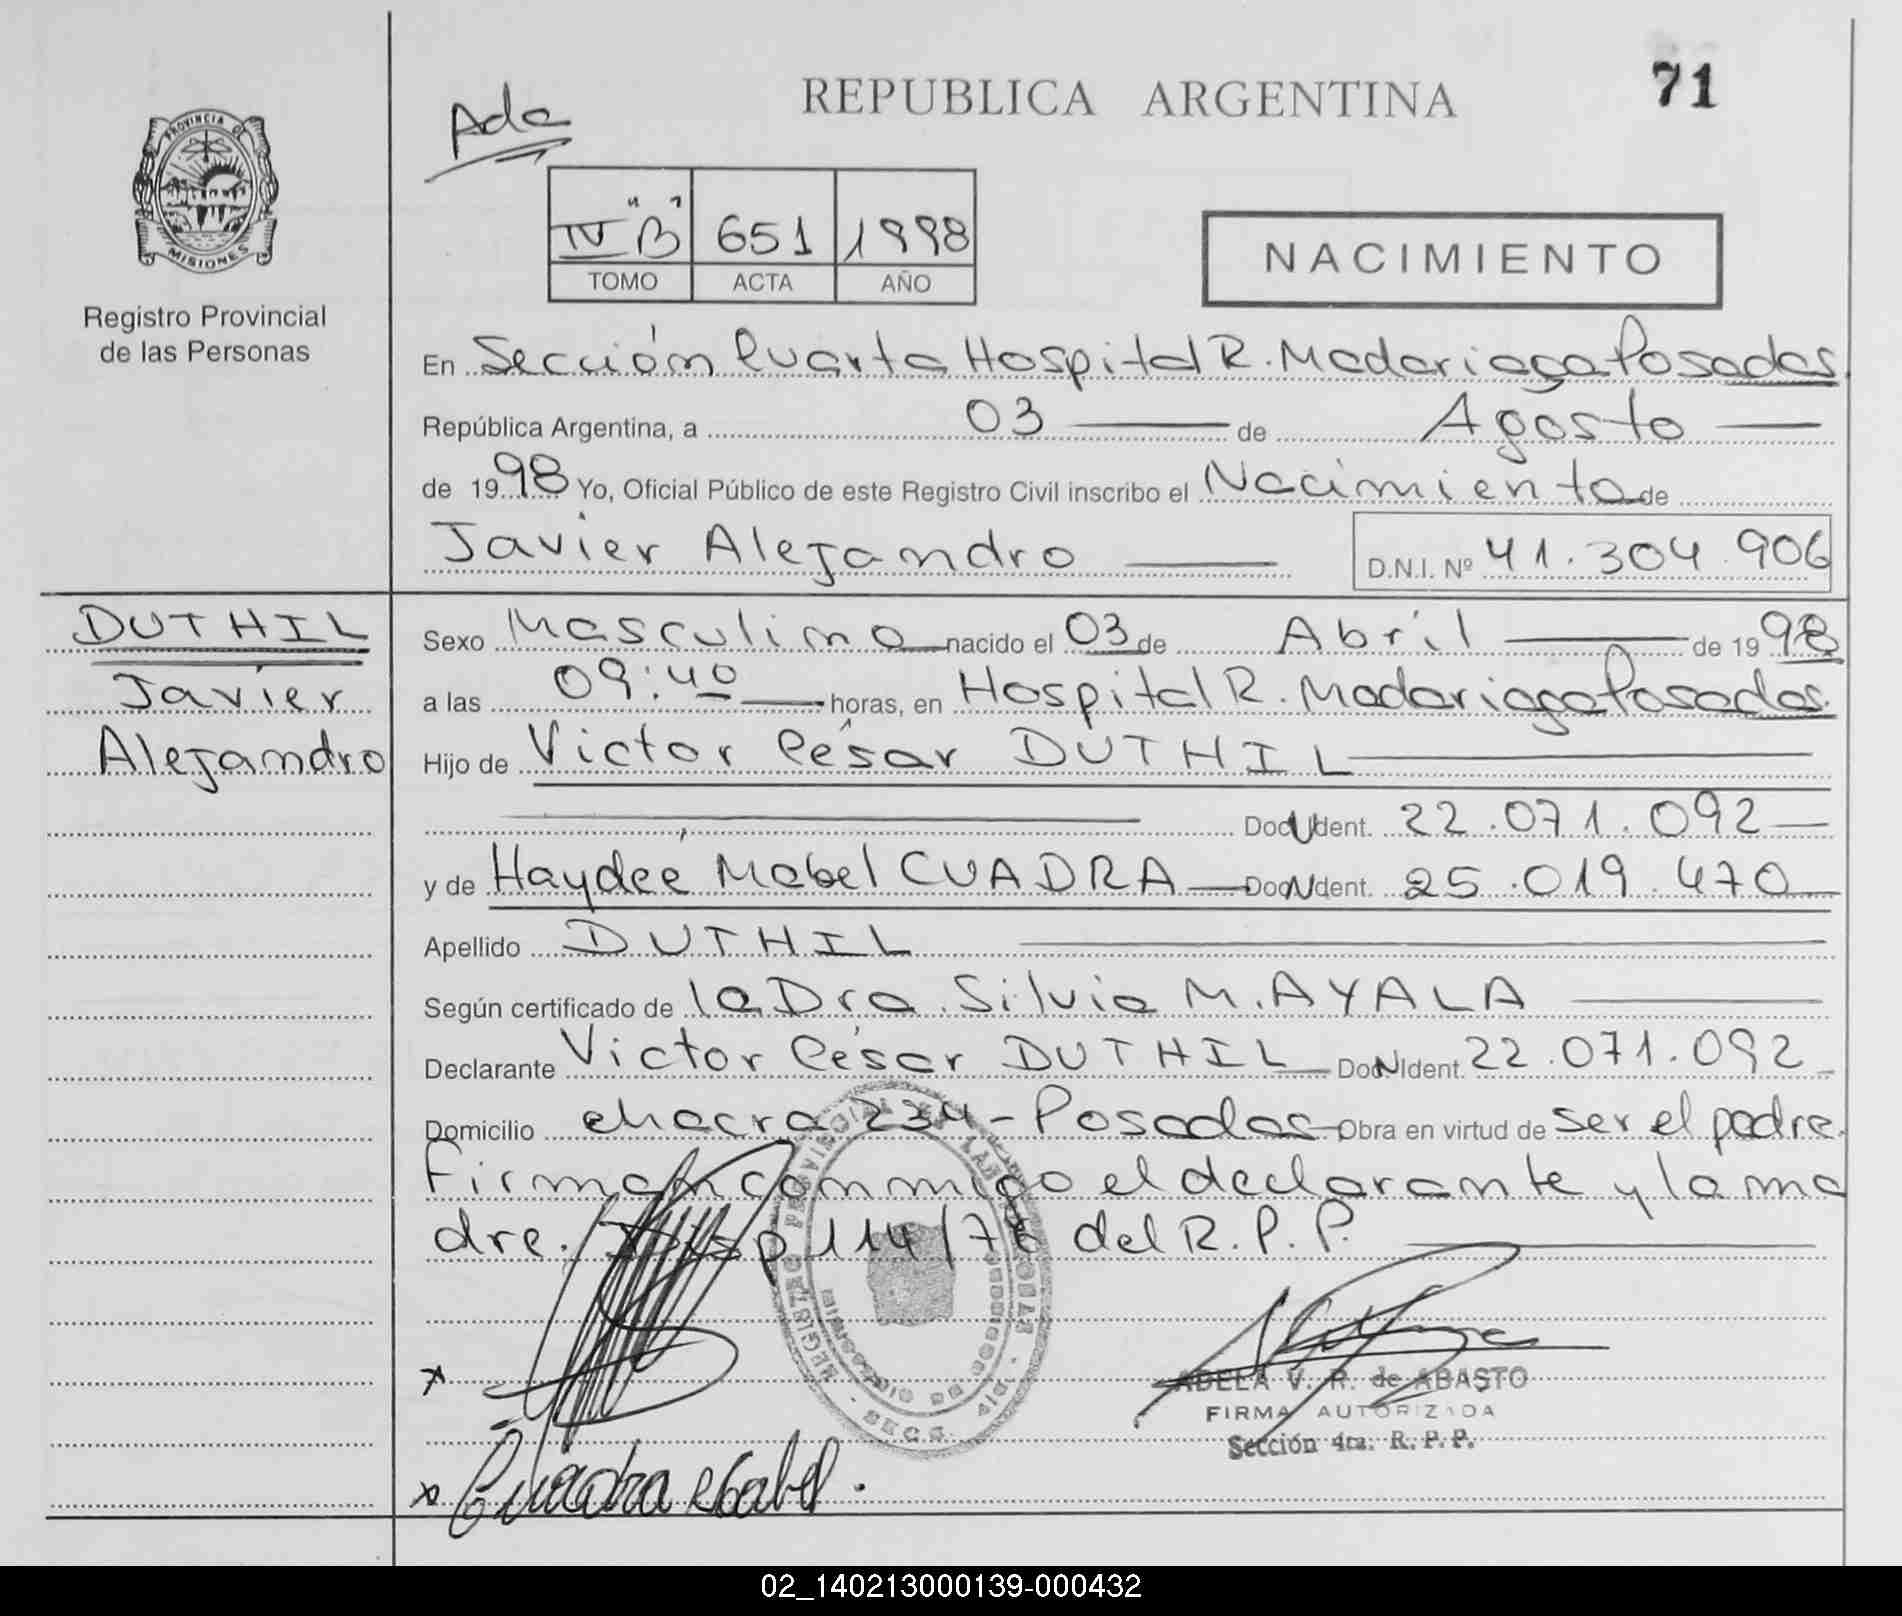 71
REPUBLICA ARGENTINA
Ada
PROVINCIA DE
MISIONES
Registro Provincial
de las Personas
IV "B" 651 1998
TOMO ACTA AÑO
NACIMIENTO
En Sección Cuarta Hospital R. Madariaga Posadas
República Argentina, a 03 de Agosto
de 1998 Yo, Oficial Público de este Registro Civil inscribo el Nacimiento de
Javier Alejandro D.N.I. Nº 41.304.906
DUTHIL
Javier
Alejandro
Sexo Masculino nacido el 03 de Abril de 1998
a las 09:40 horas, en Hospital R. Madariaga Posadas.
Hijo de Victor César DUTHIL
Doc Ident. 22.071.092
y de Haydeé Mabel CUADRA Doc Ident. 25.019.470
Apellido DUTHIL
Según certificado de la Dra. Silvia M. AYALA
Declarante Victor César DUTHIL Doc Ident. 22.071.092
Domicilio chacra 234 - Posadas Obra en virtud de ser el padre.
Firman conmigo el declarante y la ma
dre. Disp 114/78 del R.P.P.
REGISTRO PROVINCIAL DE LAS PERSONAS
ADELA V. R. de ABASTO
FIRMA AUTORIZADA
Sección 4ta. R. P. P.
x
x Cuadra Mabel.
02_140213000139-000432